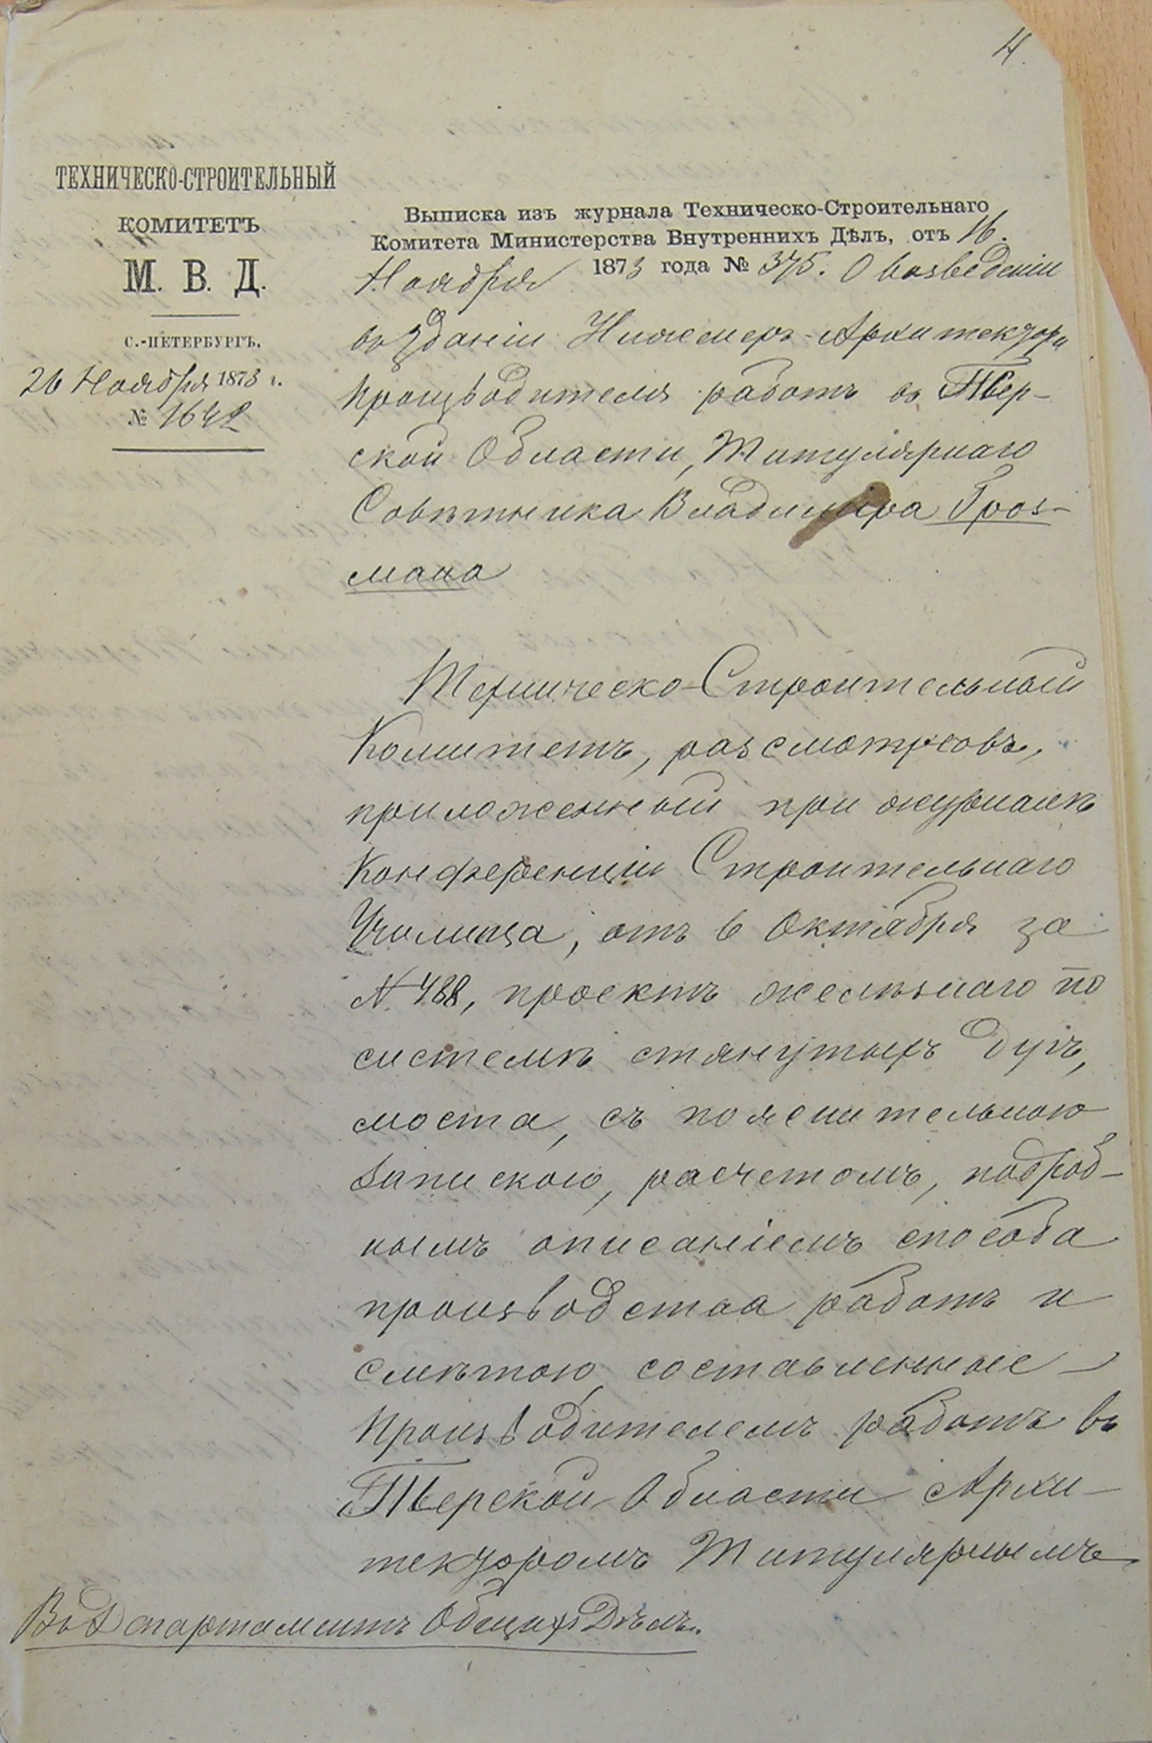 4.
ТЕХНИЧЕСКО-СТРОИТЕЛЬНЫЙ
КОМИТЕТЪ
М. В. Д.
С.-ПЕТЕРБУРГЪ.
26 Ноября 1873 г.
№ 1642
Выписка изъ журнала Техническо-Строительнаго
Комитета Министерства Внутреннихъ Дѣлъ, отъ 16.
Ноября 1873 года № 375. О возведеніи
въ званіи Инженеръ-Архитектора
производителя работъ въ Твер-
ской Области, Титулярнаго
Совѣтника Владиміра Гроз-
мана
Техническо-Строительный
Комитетъ, разсмотрѣвъ,
приложенный при журналѣ
Конференціи Строительнаго
Училища, отъ 6 Октября за
№ 488, проектъ желѣзнаго по
системѣ стянутыхъ дугъ,
моста, съ пояснительною
запискою, расчетомъ, подроб-
нымъ описаніемъ способа
производства работъ и
смѣтою, составленные
Производителемъ работъ въ
Терской Области Архи-
текторомъ Титулярнымъ
Въ Департаментъ Общихъ Дѣлъ.